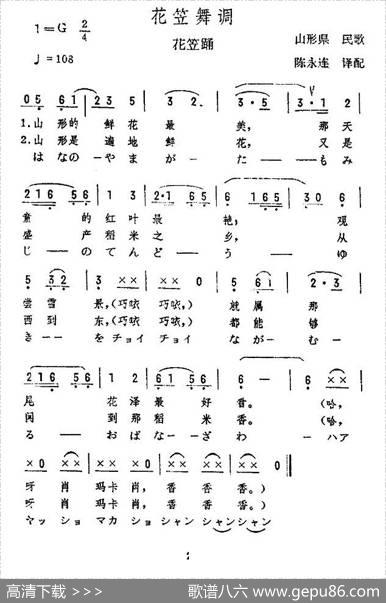 花笠舞调
1=G 2/4
花笠踊
山形県 民歌
♩=108
陈永连 译配
05 61 | 23 5 | 3 2 | 3·5 | 3·1 2 |
1.山 形的 鲜花 最 美, 那天
2.山 形是 遍地 鲜 花, 又是
はなの—やまが—た——もみ
216 56 | 1 3 | 2·1 65 | 6 165 | 30 6 |
童 的红叶最 艳, 观
盛 产稻米之 乡, 从
じ——のてんど—う——ゆ
5 32 | 3 ×× | ×× 0 | 5 61 | 2·3 |
尝雪 景,(巧哝 巧哝) 就属那
西到 东,(巧哝 巧哝) 都能够
き——をチョイチョイ ながーむー
216 56 | 1 2 | 61 56 | 6 — | 6 ×× |
尾 花泽最好 香。 (哈,
闻 到那稻米 香。 (哈,
る——おばな—ざ わ —ハア
×0 ×0 | ×× ×× | ×× ×× | ×× 0 ‖
呀 肖 玛卡肖, 香 香 香。)
呀 肖 玛卡肖, 香 香 香。)
ヤッ ショ マカ ショ シャン シャンシャン
高清下载 >>>
歌谱八六 www.gepu86.com